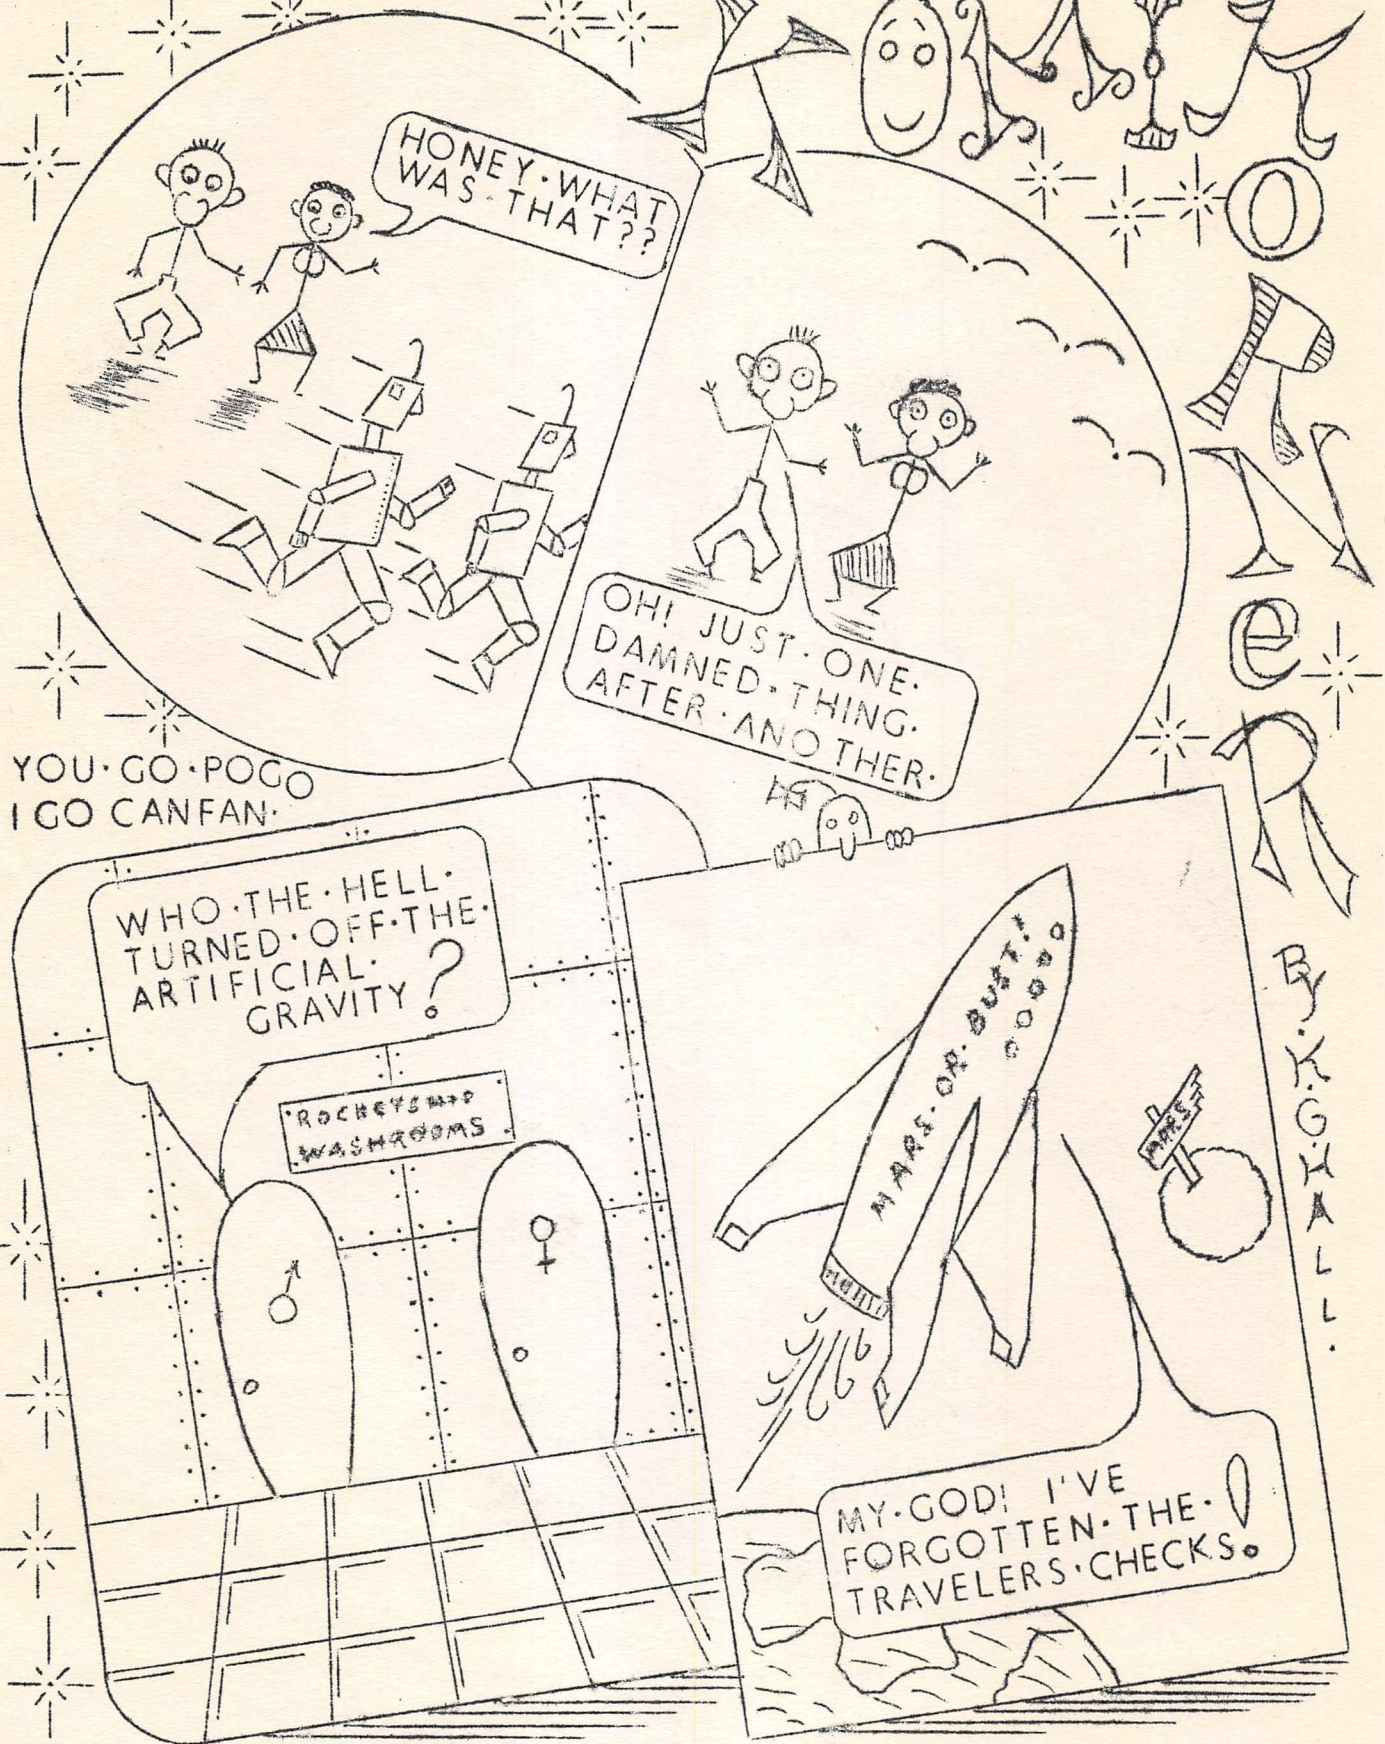 KOMIK
O
R
N
e
R
BY·K·G·HALL.
HONEY·WHAT
WAS·THAT??
OH! JUST·ONE·
DAMNED·THING·
AFTER·ANOTHER·
YOU·GO·POGO
I GO CANFAN·
WHO·THE·HELL·
TURNED·OFF·THE·
ARTIFICIAL·
GRAVITY?
ROCKETSHIP
WASHROOMS
MARS·OR·BUST!
MARS
MY·GOD! I'VE
FORGOTTEN·THE·
TRAVELERS·CHECKS!